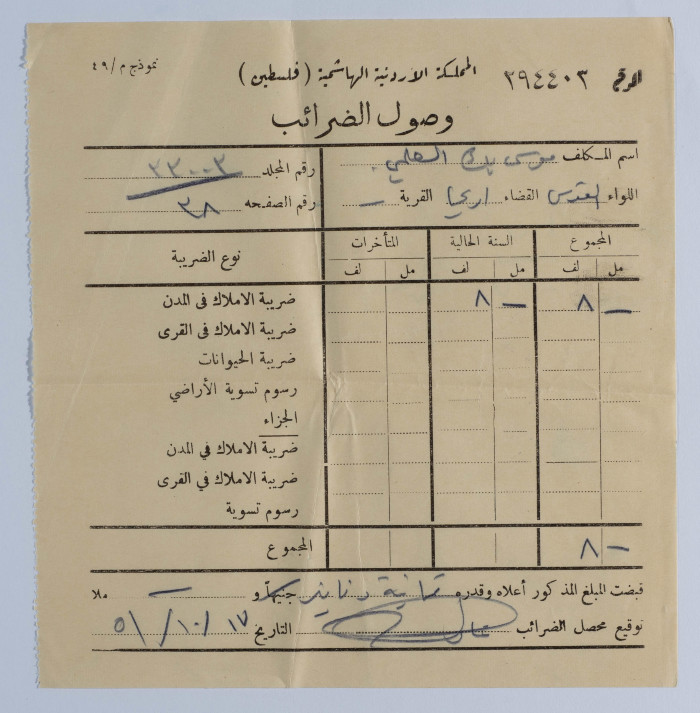 الرقم ٣٩٤٤٠٣ المملكة الاردنية الهاشمية ( فلسطين ) نموذج م/٤٩
وصول الضرائب
اسم المكلف موسى بك العلمي رقم المجلد ٣٣٠٠٣
اللواء القدس القضاء اريحا القرية — رقم الصفحه ٣٨
المجموع السنة الحالية المتأخرات نوع الضريبة
مل لف مل لف مل لف
— ٨ — ٨ ضريبة الاملاك في المدن
ضريبة الاملاك في القرى
ضريبة الحيوانات
رسوم تسوية الأراضي
الجزاء
ضريبة الاملاك في المدن
ضريبة الاملاك في القرى
رسوم تسوية
— ٨ المجموع
قبضت المبلغ المذكور أعلاه وقدره ثمانية دنانير جنيهاً و — ملا
توقيع محصل الضرائب التاريخ ١٧/١٠/٥١